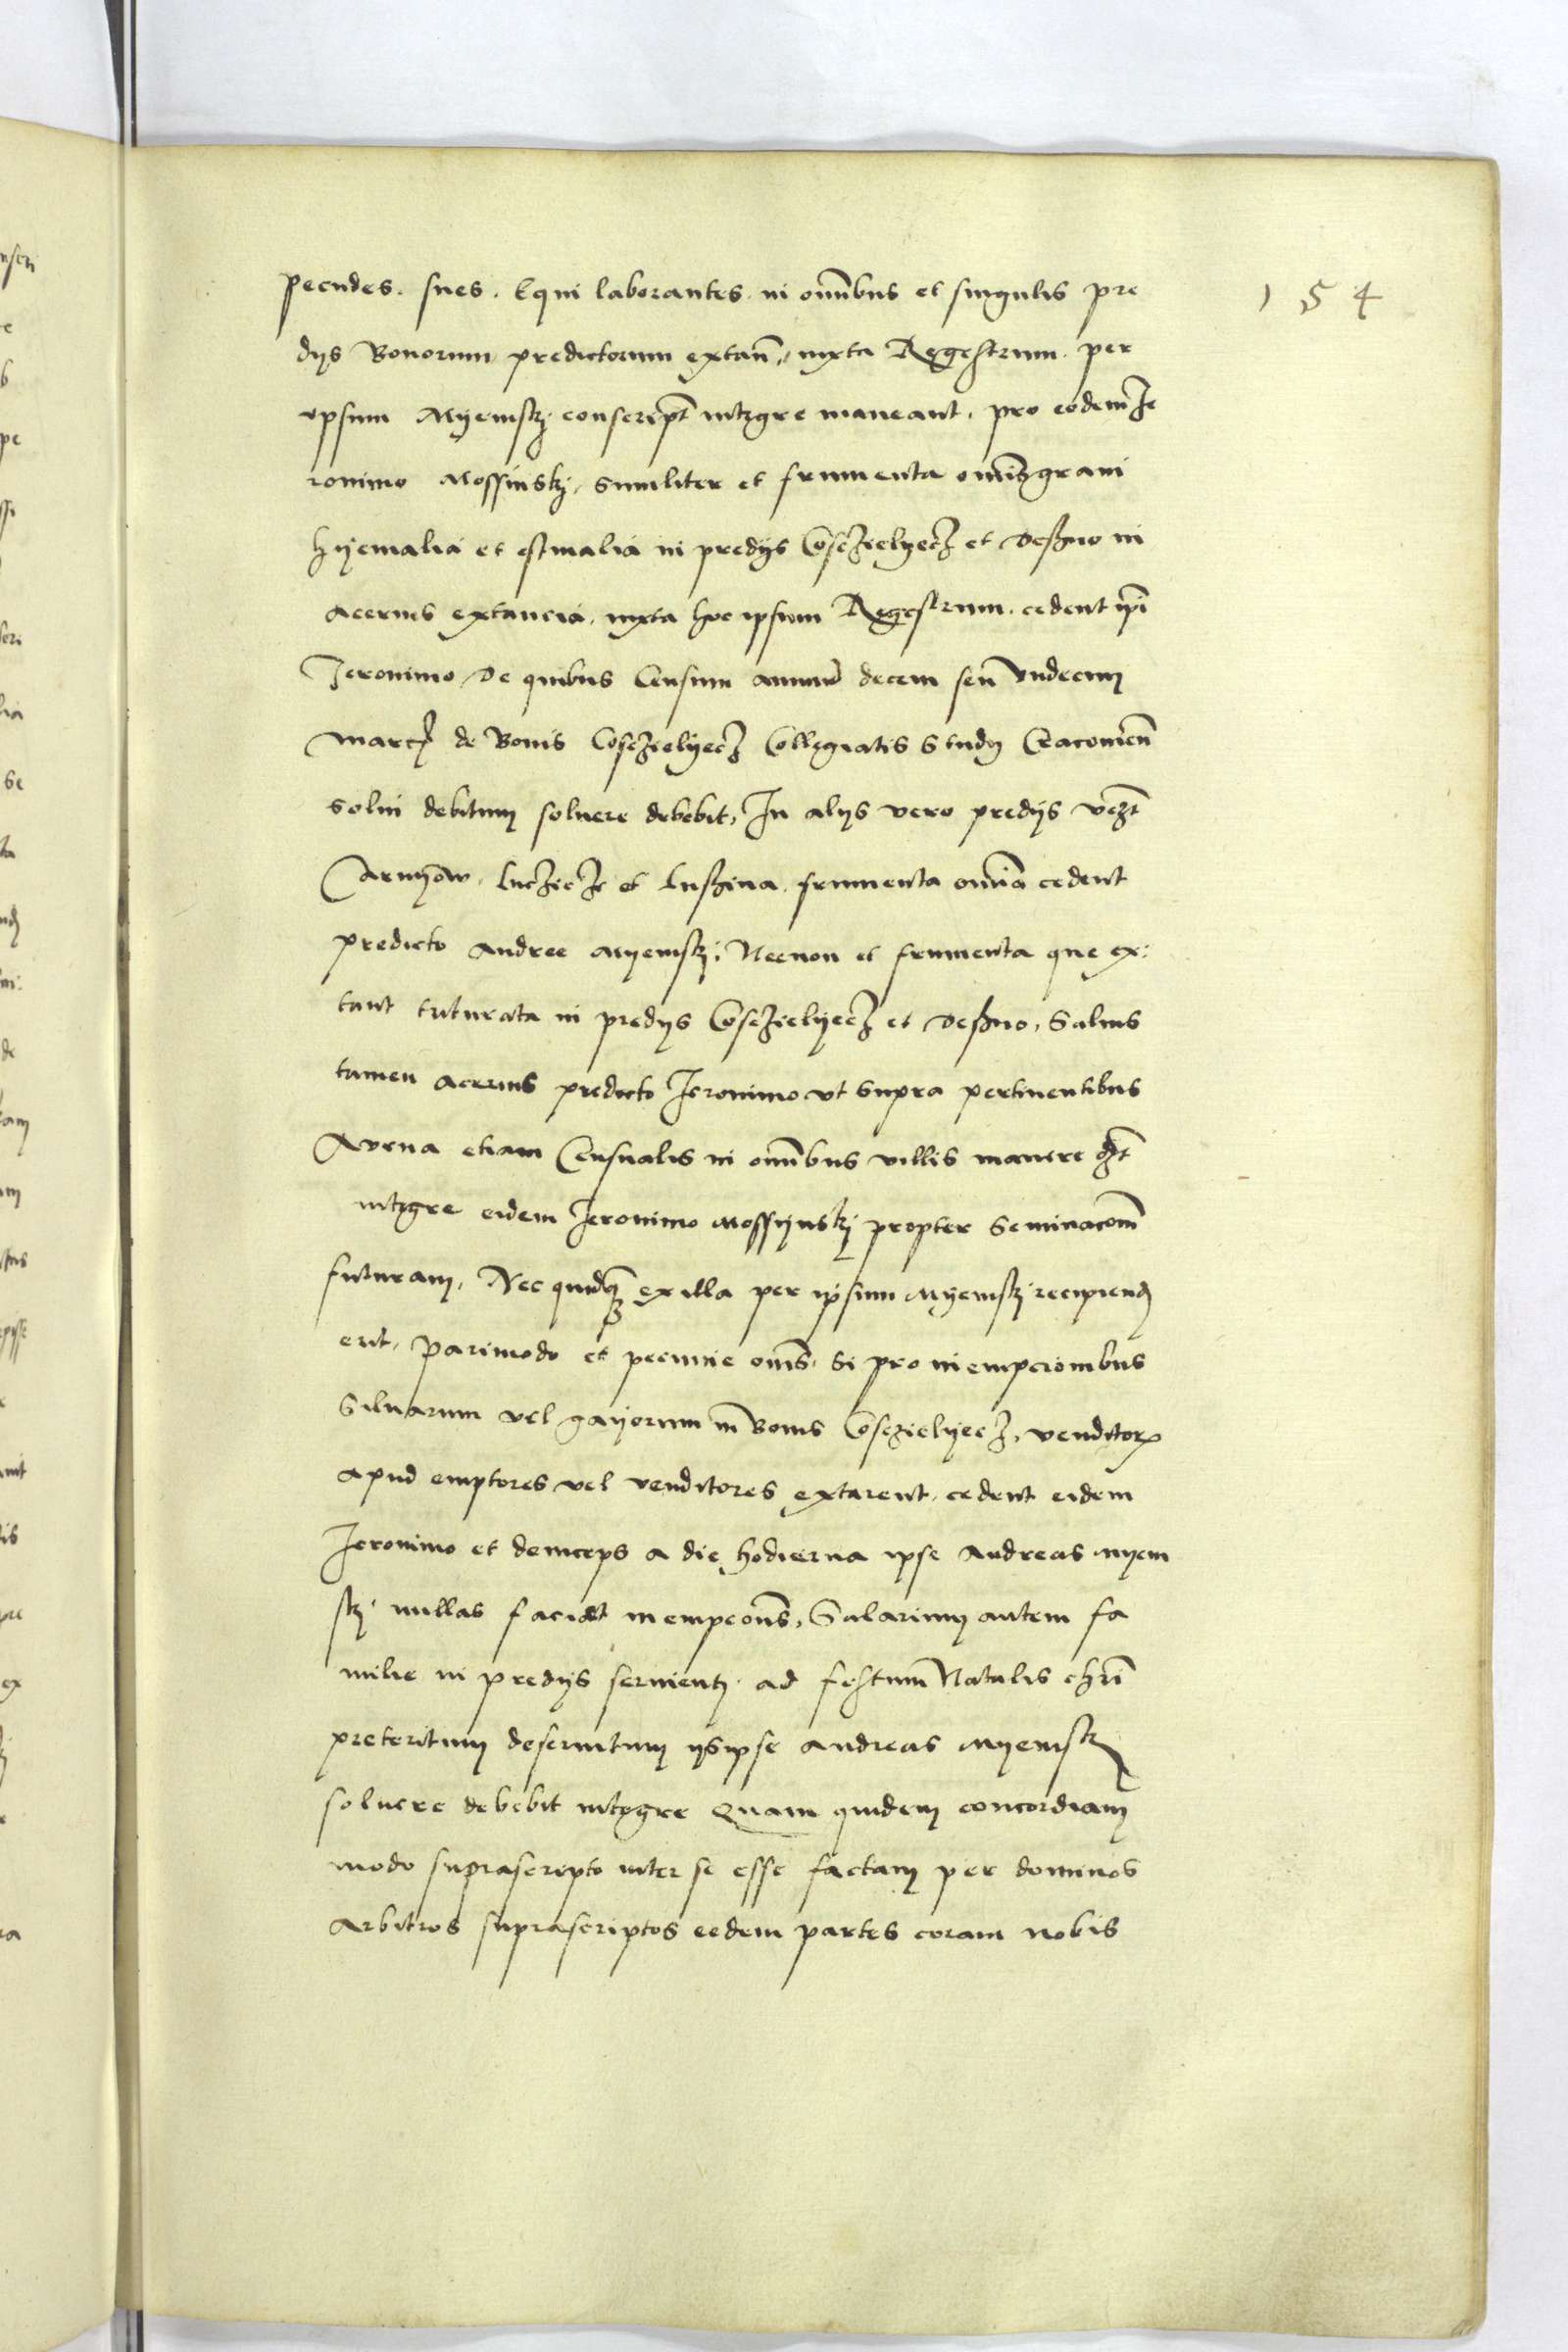 154
pecudes. sues. Equi laborantes. in omnibus et singulis pre
dijs Bonorum predictorum extan̄. iuxta Regestrum per
ipsum Myemskj conscript̄ integre maneant. pro eodem Je
ronimo Mossinskj. Similiter et frumenta omīs grani
hyemalia et estiualia in predijs Cosczielyecz et Deszno in
aceruis extancia. iuxta hoc ipsum Regestrum. cedent ip̄i
Jeronimo de quibus Censum annuū decem seu Vndecim
marcƶ de Bonis Cosczielyecz Collegiatis Studij Cracouien̄
solui debitum soluere debebit, In alijs vero predijs vcƶt
Czarnyow. Luczicze et Luszina. frumenta omīa cedent
predicto Andree Myemskj. Necnon et frumenta que ex:
tant triturata in predijs Cosczielyecz et Deszno, Saluis
tamen aceruis predicto Jeronimo vt supra pertinentibus
Avena etiam Censualis in omnibus villis manere dƶt
integre eidem Jeronimo Mossijnskj propter Seminacom̄
futuram. Nec quidqƶ ex illa per ipsum Myemskj recipiendƶ
erit. Parimodo et pecunie omīs. Si pro inempcionibus
Siluarum vel gayorum in Bonis Cosczielyecz, venditorƶ
apud emptores vel venditores extarent. cedent eidem
Jeronimo et deinceps a die hodierna ipse Andreas Myem
skj nullas faciat inempcon̄s, Salarium autem fa
milie in predijs seruientj. ad festum Natalis chrī
preteritum deseruitum ijsipse Andreas Myemskj
soluere debebit integre Quam quidem concordiam
modo suprascripto inter se esse factam per dominos
Arbitros suprascriptos eedem partes coram nobis